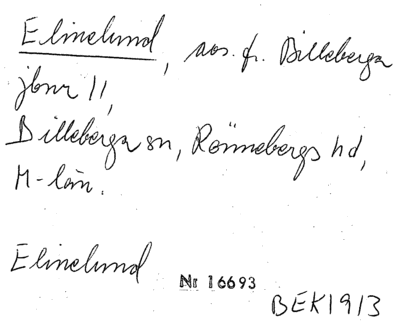 Elinelund, avs. fr. Billeberga
jbnr 11,
Billeberga sn, Rönnebergs hd,
M-län.
Elinelund
Nr 16693
BEK1913